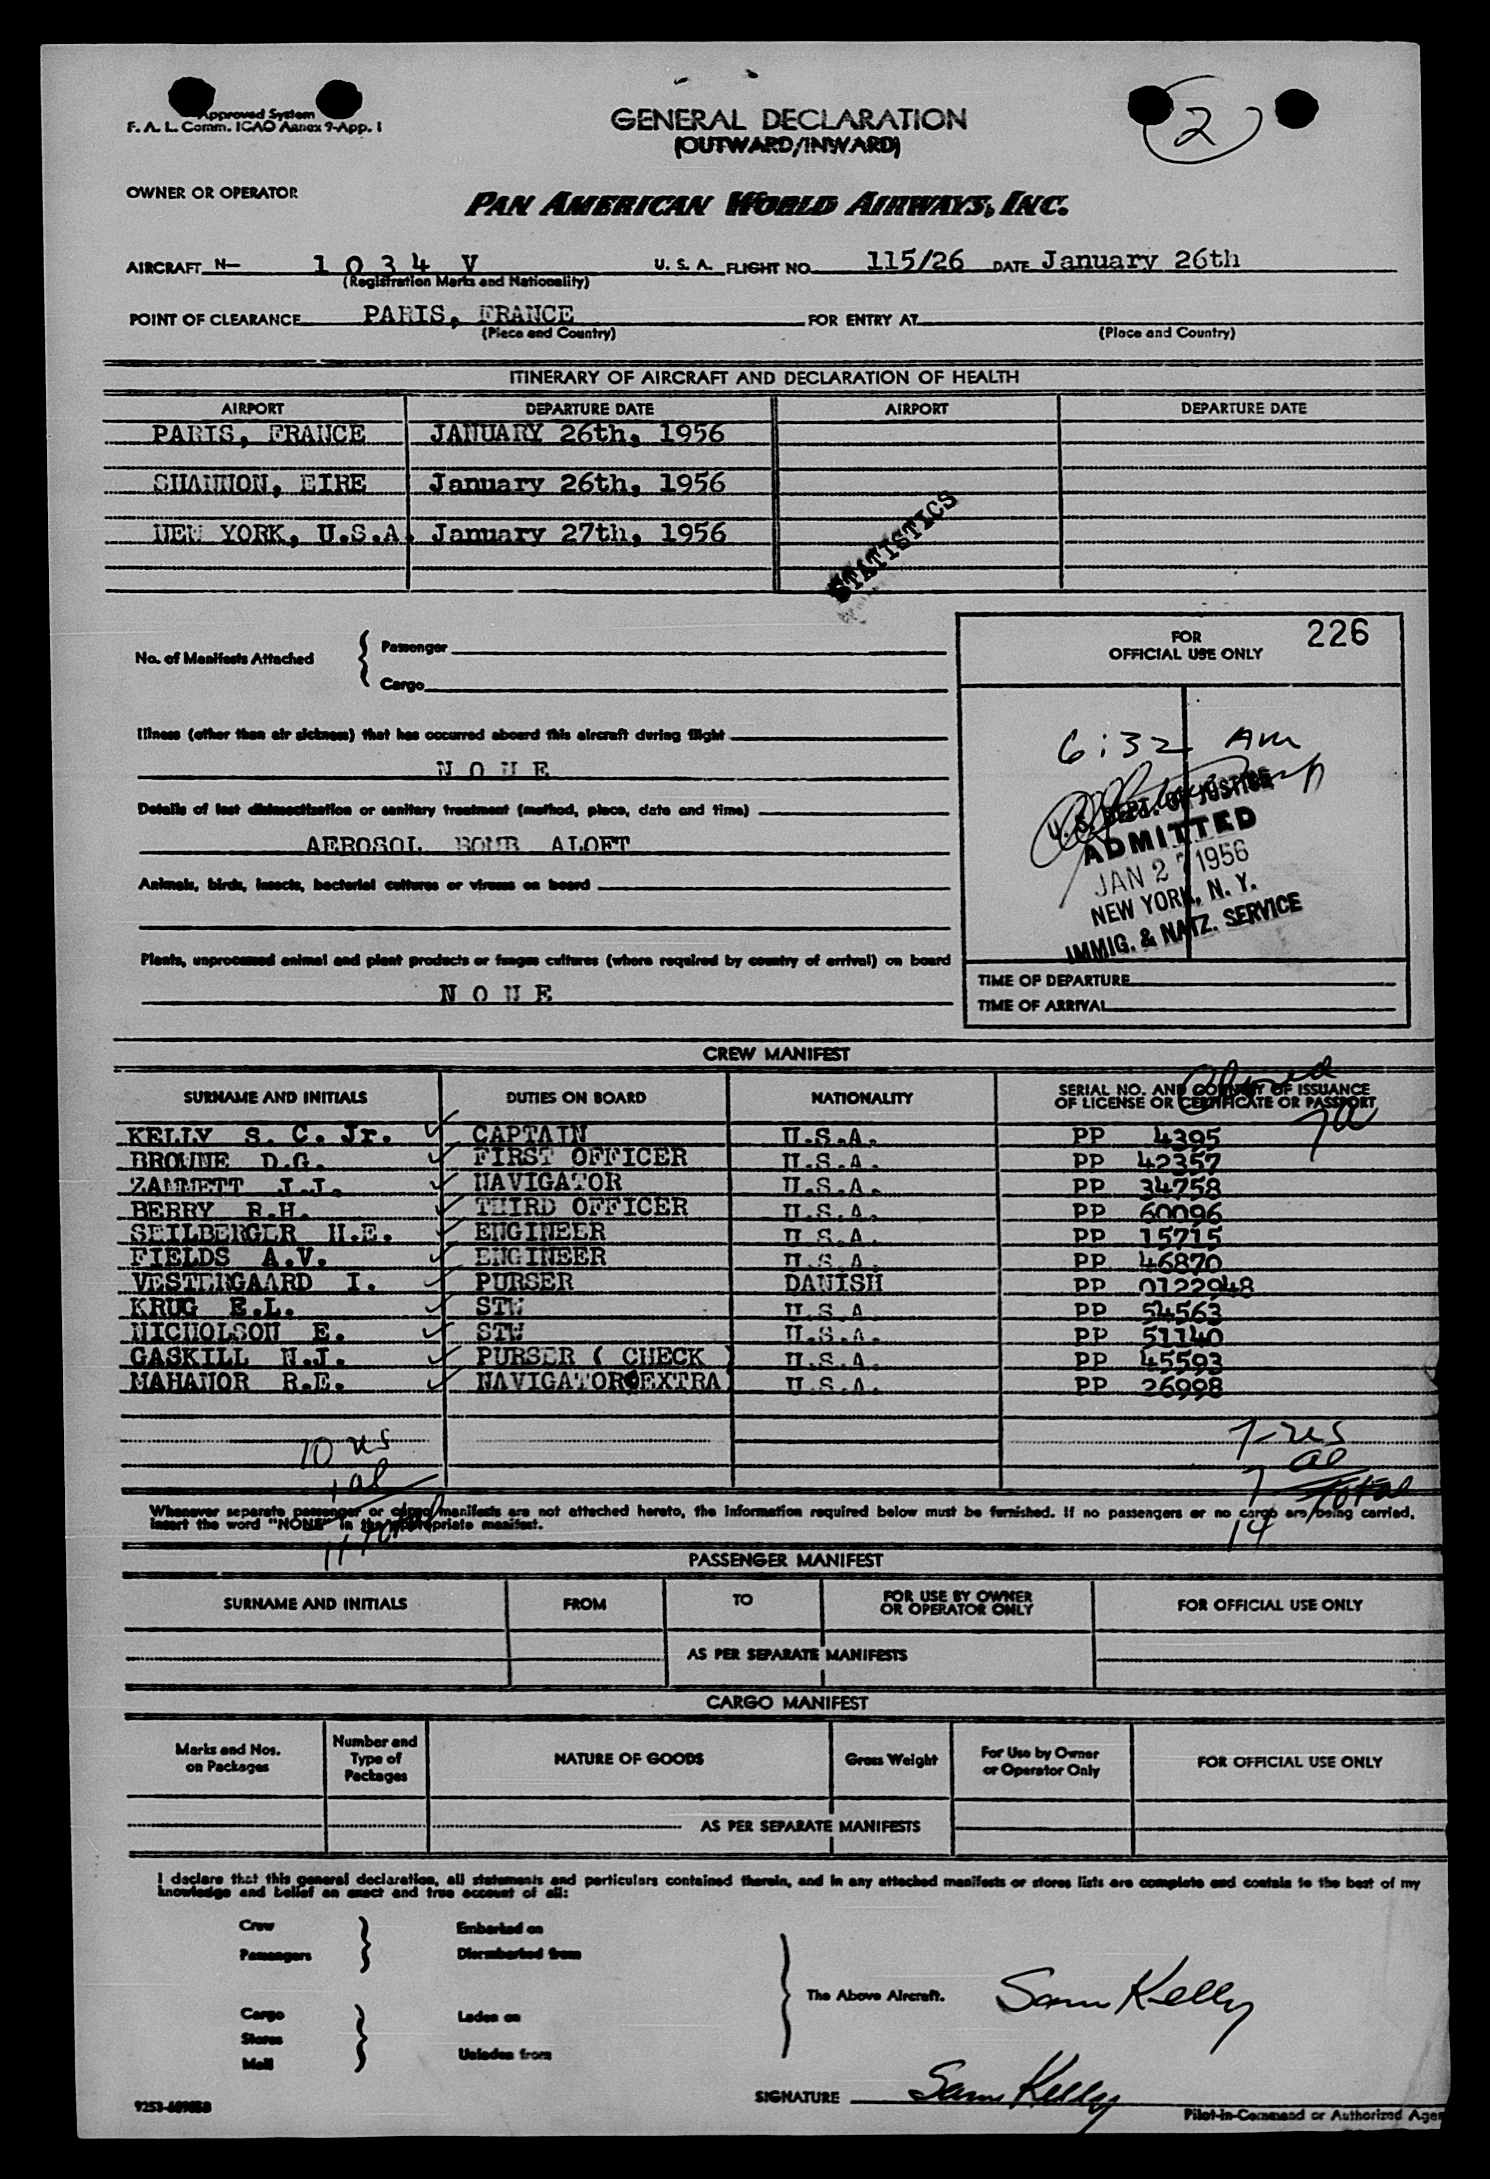 Approved System
F. A. L. Comm. ICAO Annex 9-App. 1
GENERAL DECLARATION
(OUTWARD/INWARD)
2
OWNER OR OPERATOR
PAN AMERICAN WORLD AIRWAYS, INC.
AIRCRAFT N— 1 0 3 4 V U. S. A. FLIGHT NO. 115/26 DATE January 26th
(Registration Marks and Nationality)
POINT OF CLEARANCE PARIS, FRANCE FOR ENTRY AT
(Place and Country) (Place and Country)
ITINERARY OF AIRCRAFT AND DECLARATION OF HEALTH
AIRPORT DEPARTURE DATE AIRPORT DEPARTURE DATE
PARIS, FRANCE JANUARY 26th, 1956
SHANNON, EIRE January 26th, 1956
NEW YORK, U.S.A. January 27th, 1956
STATISTICS
No. of Manifests Attached { Passenger
Cargo
FOR OFFICIAL USE ONLY 226
Illness (other than air sickness) that has occurred aboard this aircraft during flight
N O N E
Details of last disinsectization or sanitary treatment (method, place, date and time)
AEROSOL BOMB ALOFT
Animals, birds, insects, bacterial cultures or viruses on board
Plants, unprocessed animal and plant products or fungus cultures (where required by country of arrival) on board
N O N E
6:32 AM
U. S. DEPT. OF JUSTICE
ADMITTED
JAN 27 1956
NEW YORK, N. Y.
IMMIG. & NATZ. SERVICE
TIME OF DEPARTURE
TIME OF ARRIVAL
CREW MANIFEST
SURNAME AND INITIALS DUTIES ON BOARD NATIONALITY SERIAL NO. AND COUNTRY OF ISSUANCE OF LICENSE OR CERTIFICATE OR PASSPORT
KELLY S. C. Jr. CAPTAIN U.S.A. PP 4395
BROWNE D.G. FIRST OFFICER U.S.A. PP 42357
ZAMMETT J.J. NAVIGATOR U.S.A. PP 34758
BERRY R.H. THIRD OFFICER U.S.A. PP 60096
SEILBERGER H.E. ENGINEER U.S.A. PP 15715
FIELDS A.V. ENGINEER U.S.A. PP 46870
VESTERGAARD I. PURSER DANISH PP 0122948
KRUG E.L. STW U.S.A PP 54563
NICHOLSON E. STW U.S.A. PP 51140
GASKILL N.J. PURSER ( CHECK ) U.S.A. PP 45593
MAHANOR R.E. NAVIGATOR(EXTRA) U.S.A. PP 26998
10 us 7-us
1 al 7 al
11 total 14 Total
Whenever separate passenger or cargo manifests are not attached hereto, the information required below must be furnished. If no passengers or no cargo are being carried,
insert the word "NONE" in the appropriate manifest.
PASSENGER MANIFEST
SURNAME AND INITIALS FROM TO FOR USE BY OWNER OR OPERATOR ONLY FOR OFFICIAL USE ONLY
AS PER SEPARATE MANIFESTS
CARGO MANIFEST
Marks and Nos. on Packages Number and Type of Packages NATURE OF GOODS Gross Weight For Use by Owner or Operator Only FOR OFFICIAL USE ONLY
AS PER SEPARATE MANIFESTS
I declare that this general declaration, all statements and particulars contained therein, and in any attached manifests or stores lists are complete and contain to the best of my
knowledge and belief an exact and true account of all:
Crew Embarked on
Passengers Disembarked from
The Above Aircraft. Sam Kelly
Cargo Laden on
Stores
Mail Unladen from
SIGNATURE Sam Kelly
Pilot-in-Command or Authorized Agen